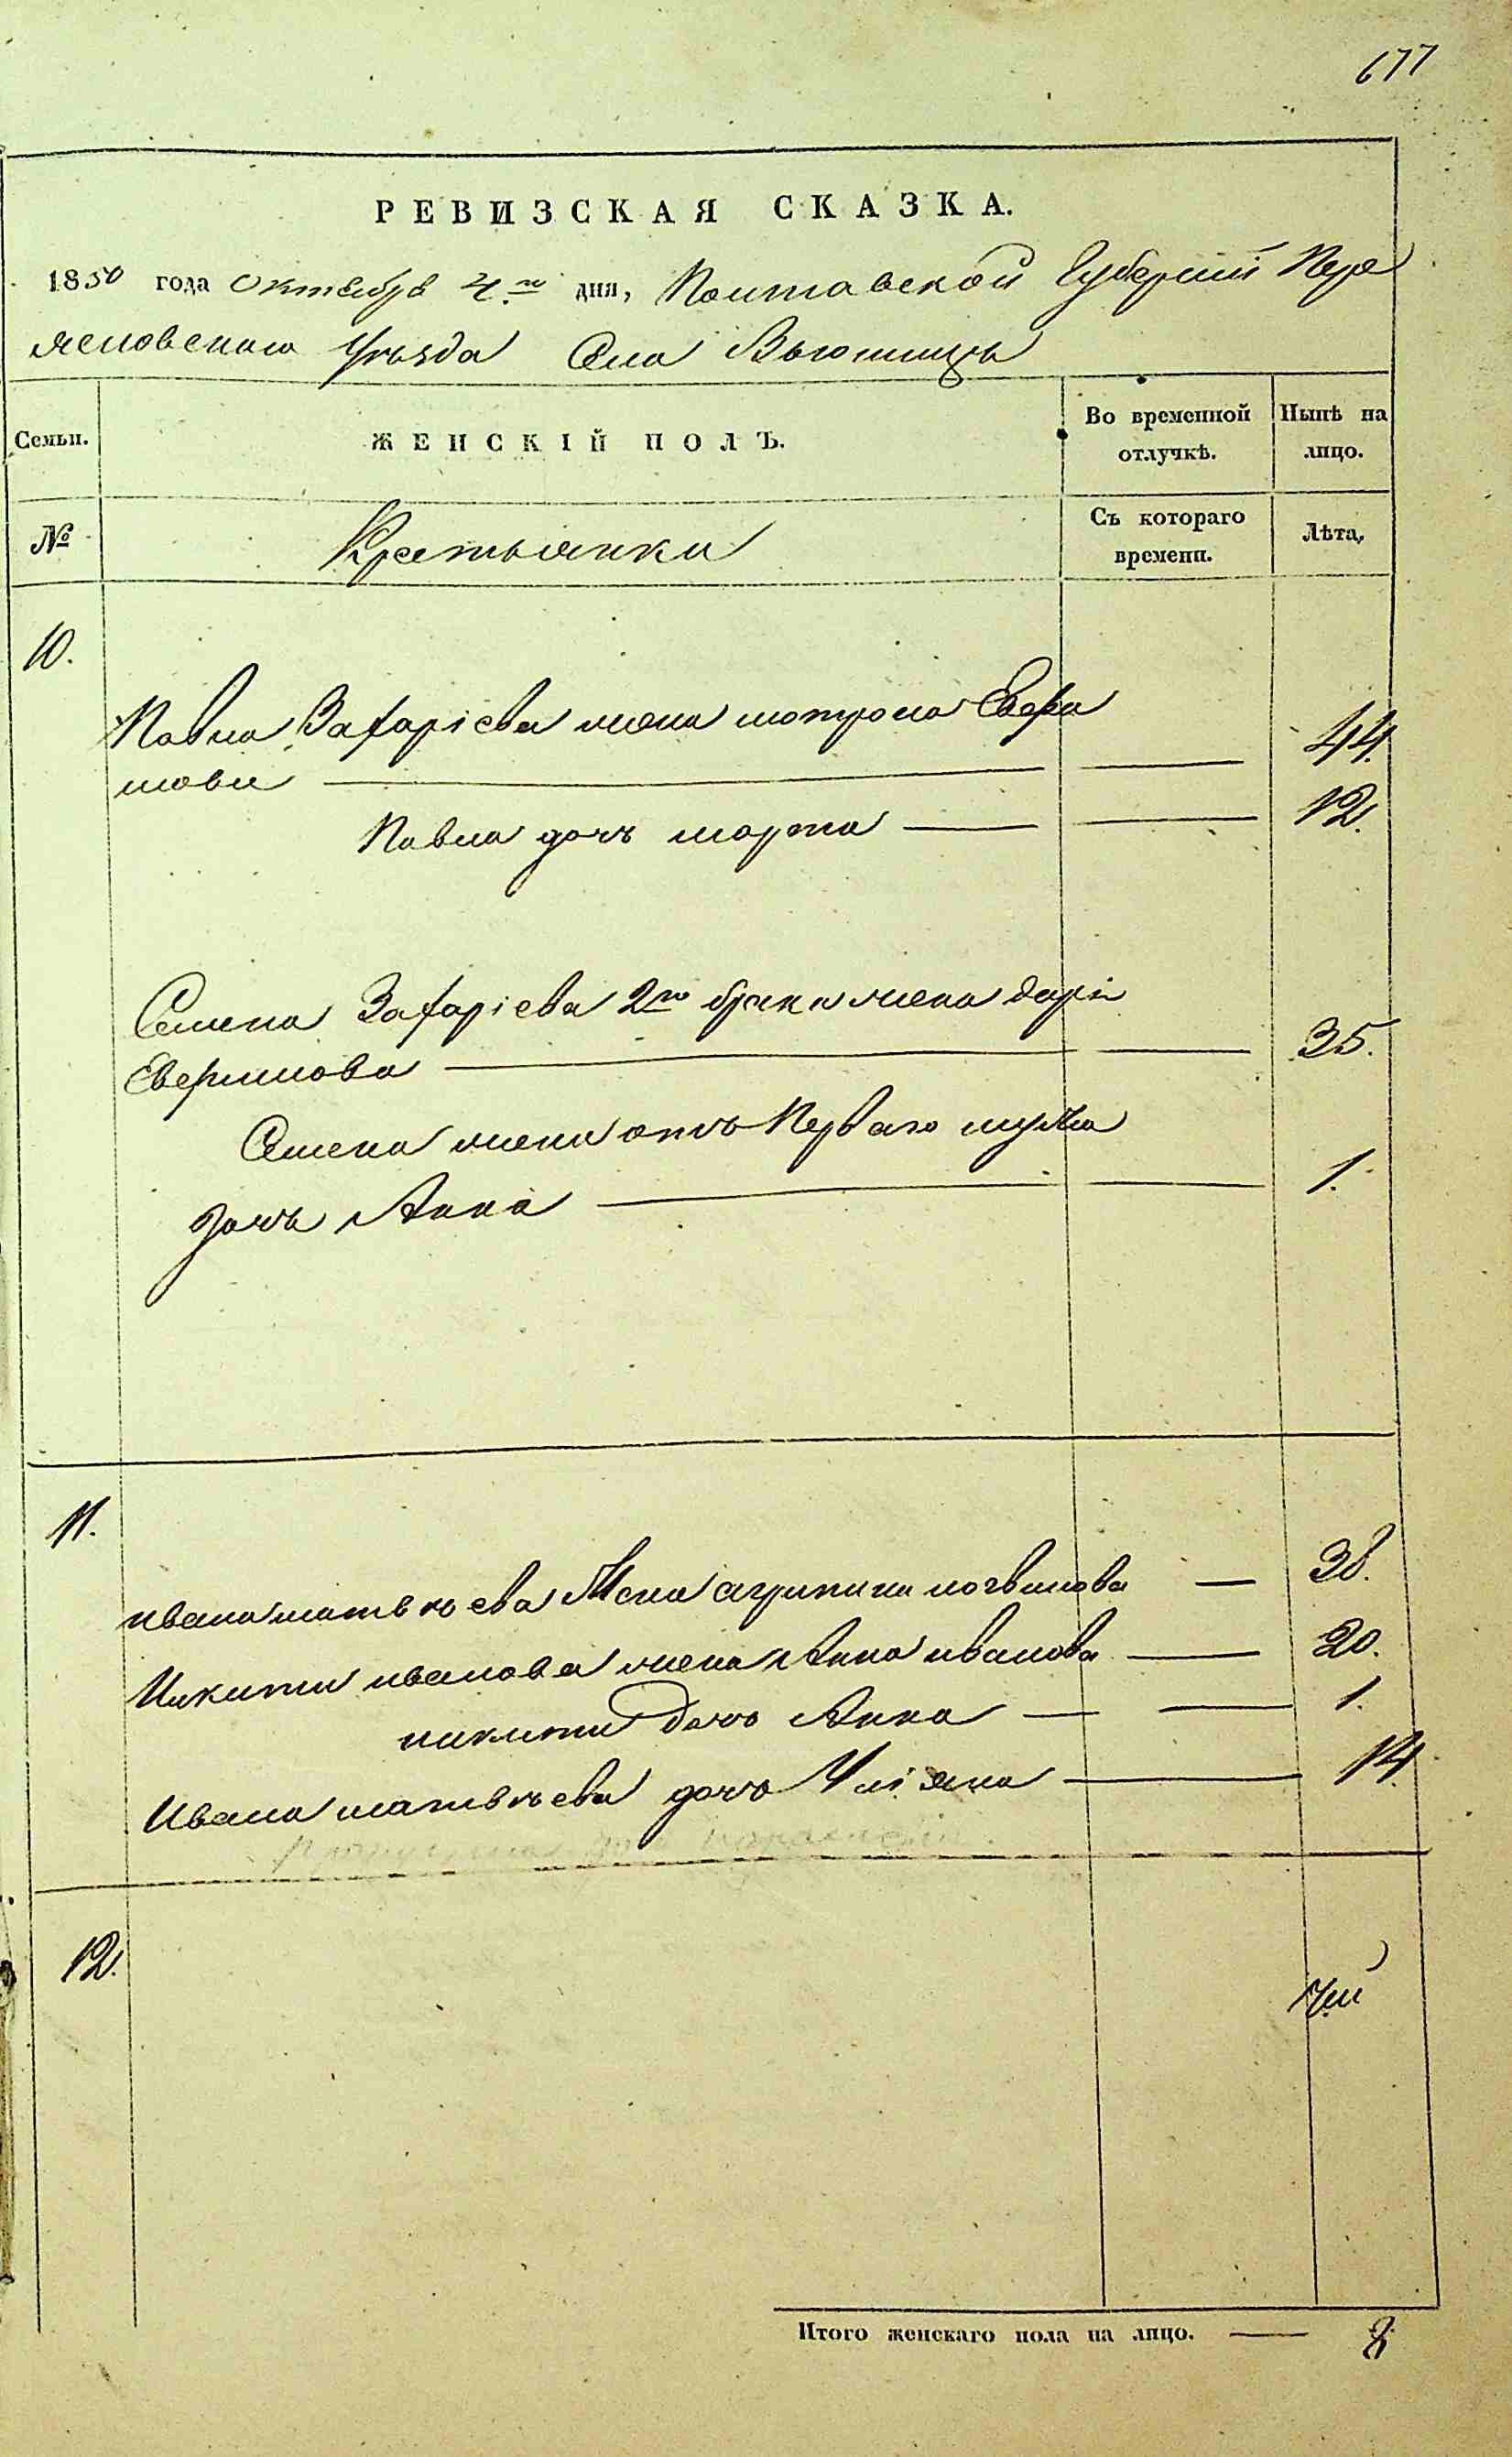 677
РЕВИЗСКАЯ СКАЗКА.
1850 года октября 4.го дня, Полтавской Губернии Пере
яслOвскаго Уѣзда Села Вьюнищъ
Семьи. ЖЕНСКІЙ ПОЛЪ. Во временной отлучкѣ. Нынѣ на лицо.
№ Крестьянки Съ котораго времени. Лѣта.
10.
Павла Захарiева жена мотрона
44.
Павла дочь марфа 12.
Семена Захарiева 2го брака жена дарiя
35.
Семена жены отъ Перваго мужа
дочь Анна 1.
11.
ивана матвѣева Жена агрипина логвинова 38.
Никиты иванова жена Анна иванова 20.
никиты дочь Анна 1.
Ивана матвѣева дочь Улiяна 14.
12.
Итого женскаго пола на лицо. 8